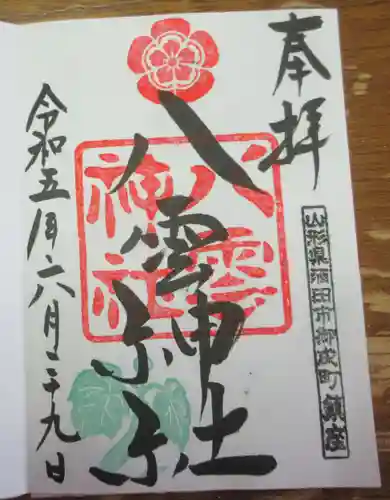 奉拝
山形県酒田市御成町鎮座
八雲神社
八雲神社
令和五年六月二十九日